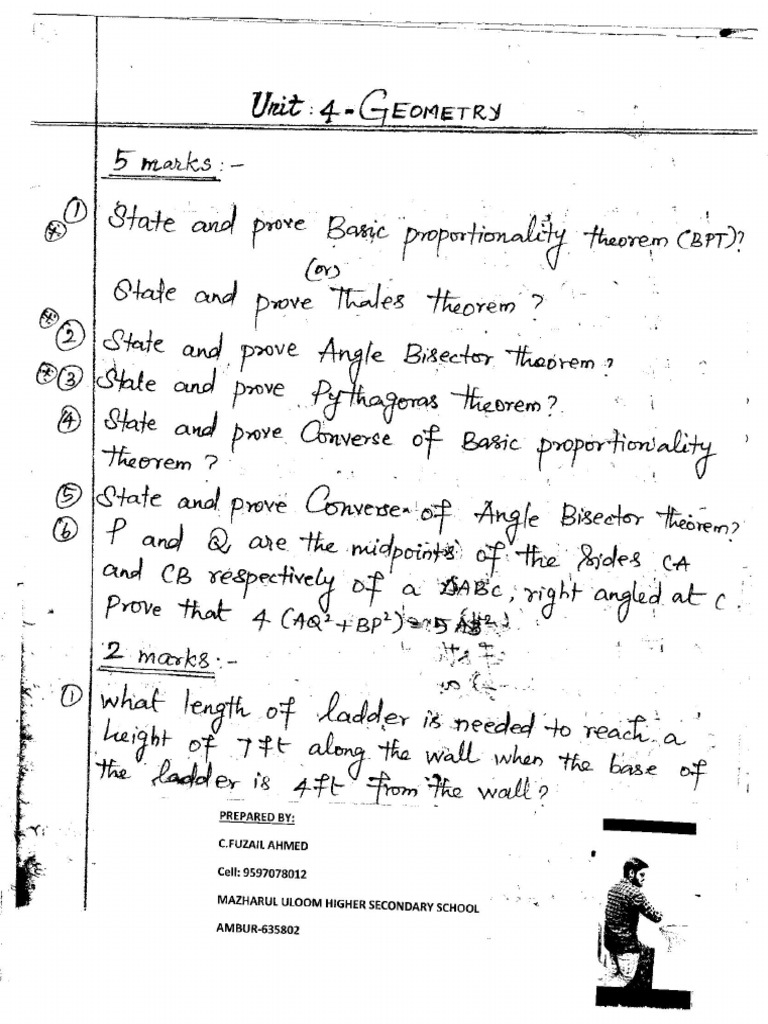 Unit : 4 - GEOMETRY
5 marks :-
① State and prove Basic proportionality theorem (BPT)?
(or)
State and prove Thales theorem ?
② State and prove Angle Bisector theorem ?
③ State and prove Pythagoras theorem ?
④ State and prove Converse of Basic proportionality
theorem ?
⑤ State and prove Converse of Angle Bisector theorem?
⑥ P and Q are the midpoints of the sides CA
and CB respectively of a ΔABC, right angled at C.
Prove that 4 (AQ²+BP²) = 5 AB²
2 marks :-
① what length of ladder is needed to reach a
height of 7ft along the wall when the base of
the ladder is 4ft from the wall?
PREPARED BY:
C.FUZAIL AHMED
Cell: 9597078012
MAZHARUL ULOOM HIGHER SECONDARY SCHOOL
AMBUR-635802